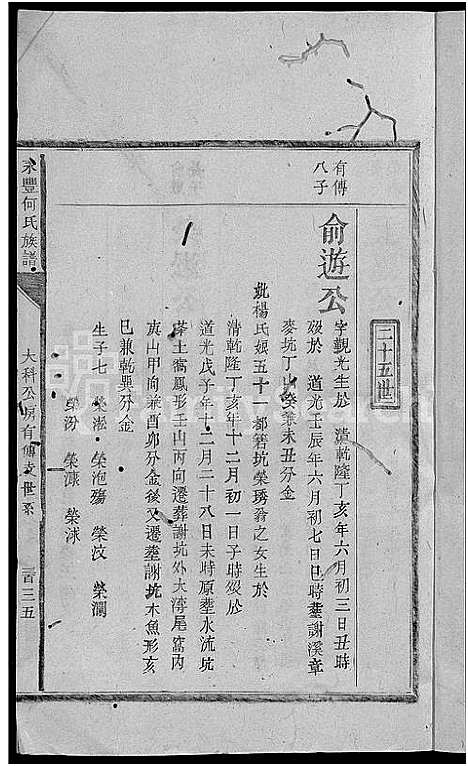 二十五世
有傳
八子
俞遊公
字觀光生於 清乾隆丁亥年六月初三日丑時
歿於 道光壬辰年六月初七日巳時塟謝溪章
麥坑丁山癸兼未丑分金
妣楊氏娘五十一都箬坑榮琇翁之女生於
清乾隆丁亥年十二月初一日子時歿於
道光戊子年十二月二十八日未時原塟水流坑
茅土窩鳳形壬山丙向遷葬謝坑外大湾尾窩內
寅山甲向兼酉卯分金後又遷塟謝坑木魚形亥
巳兼乾巽分金
生子七 榮淞 榮沲殤 榮汶 榮瀾
榮汾 榮濂 榮沭
永豐何氏族譜
大科公房有傳支世系
一百三五